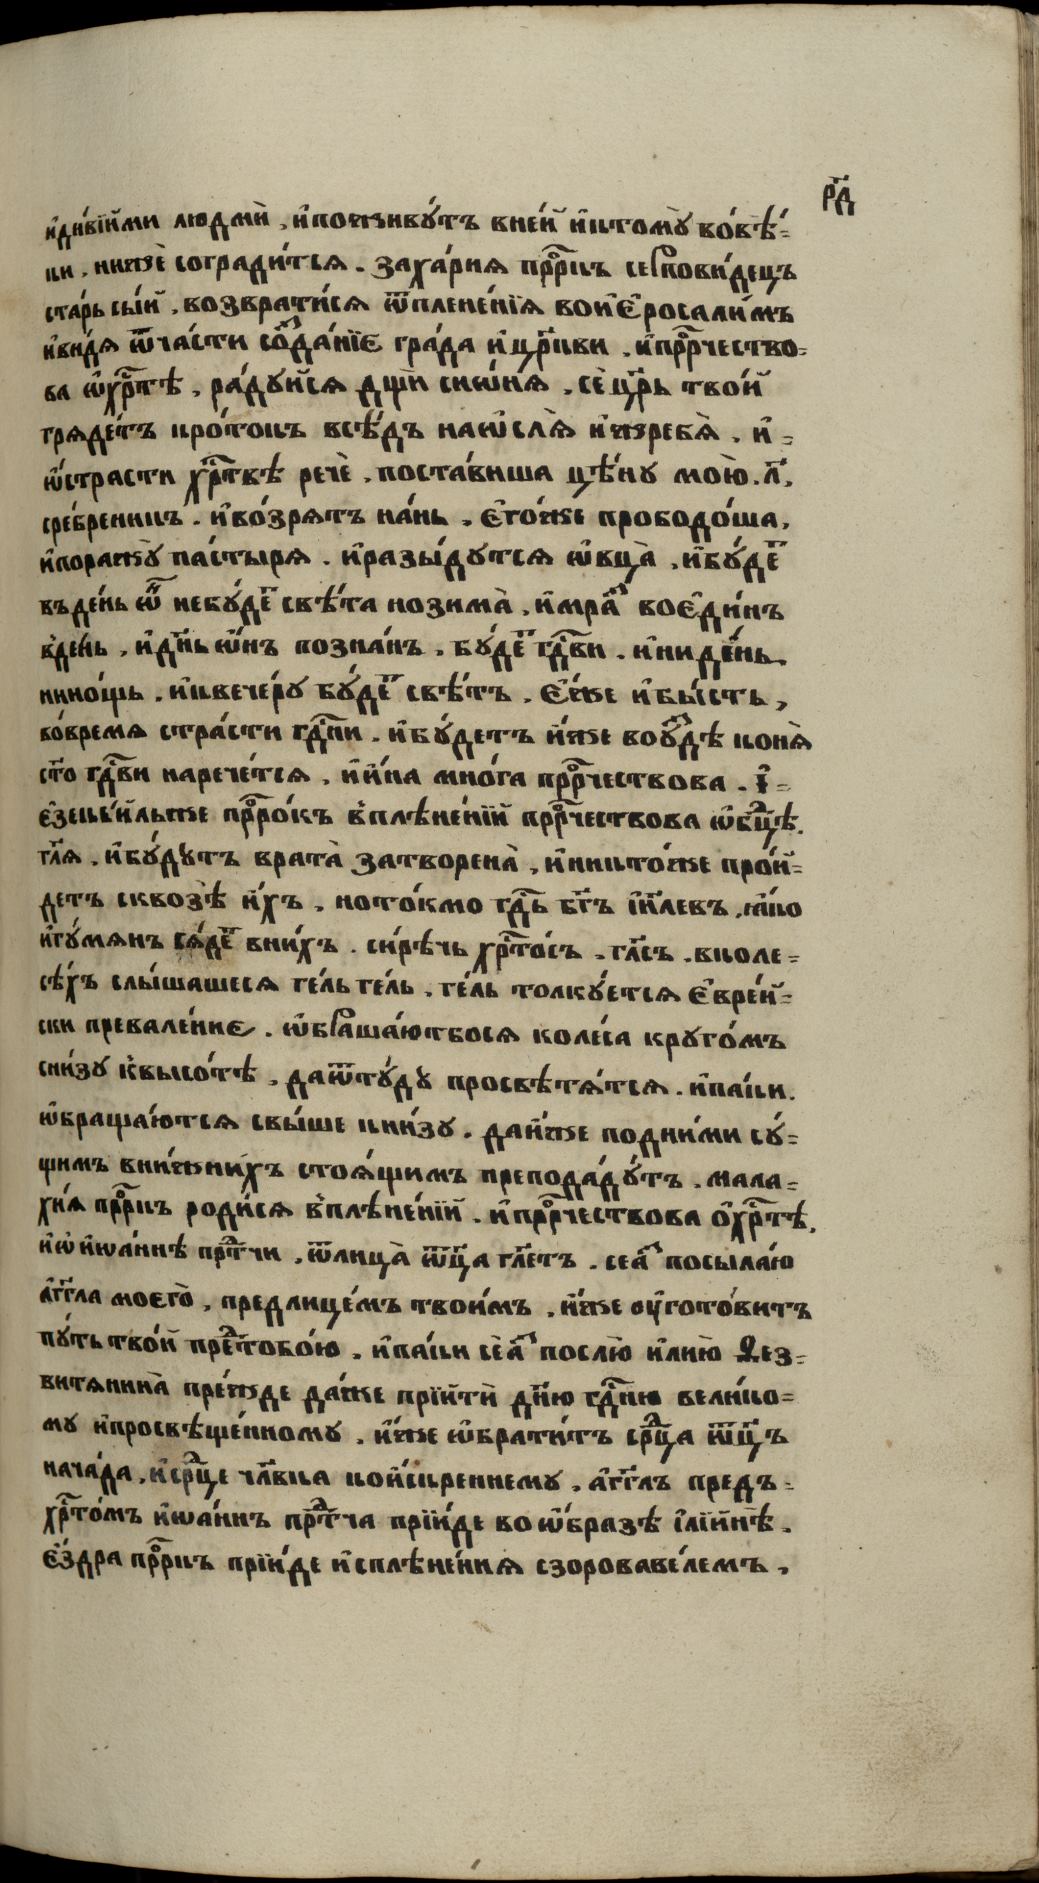 р҃д
и҆ди́вїими людмѝ, и҆пожиꙋ́тъ вне́й и҆ктомꙋ̀ во́вѣ́-
ки, нижѐ согради́тся. заха́рия прⷪ҇ркъ серповѝдецъ
ста́рь сы́й, возврати́ся ѿпленє́нїя воиє҆росали́мъ
и҆ви́дя ѿча́сти соⷥ҇да́нїє гра́да и҆цр҃кви. и҆прⷪ҇рчество-
ва ѡ҆хрⷭ҇тѣ̀, ра́дꙋйся дщѝ сиѡ́ня, сѐцр҃ь тво́й
гряде́тъ кро́токъ всѣ́дъ наѡ҆сля̀ и҆жребя̀. и҆-
ѡ҆стра́сти хрⷭ҇твѣ речѐ, поста́виша цѣ́нꙋ мою̀. л҃,
сре́бреникъ. и҆во́зрятъ на́нь, є҆го́же прободо́ша,
и҆поражꙋ̀ па́стыря. и҆разы́дꙋтся ѻ҆вца̀, и҆бꙋ́деⷮ
въде́нь ѻ҆́нъ небꙋ́деⷮ свѣ́та нозима̀, и҆мра́ⷥ воє҆ди́нъ
вде́нь, и҆дн҃ь ѻ҆́нъ позна́нъ, бꙋ́деⷮ гдⷭ҇ви. и҆ниде́нь
нино́щь. и҆квече́рꙋ бꙋ́деⷮ свѣ́тъ. є҆́же и҆бы́сть,
во́время стра́сти гдⷭ҇ни. и҆бꙋ́детъ и҆́же воꙋⷥ҇дѣ̀ коня̀
ст҃о гдⷭ҇ви нарече́тся, и҆и҆́на мно́га прⷪ҇рчествова. і҆-
є҆зеки́ильже прⷪ҇ро́къ вплѣне́нїй прⷪ҇рчествова ѡ҆бцⷣѣ.
гл҃я, и҆бꙋ́дꙋтъ врата̀ затворена̀, и҆никто́же про́й-
детъ сквозѣ̀ и҆́хъ, ното́кмо гдⷭ҇ь бг҃ъ і҆и҃левъ, ꙗ҆́ко
и҆гꙋ́мянъ ся́деⷮ вни́хъ. си́рѣчь хрⷭ҇то́съ. гл҃съ, вколе-
сѣ́хъ слы́шашеся ге́льге́ль, ге́ль толкꙋ́ется є҆вре́й-
ски превале́ние. ѡ҆браща́ютбося коле́са крꙋго́мъ
сни́зꙋ квысо́тѣ, даѿтꙋ́дꙋ просвѣтя́тся. и҆па́ки.
ѡ҆браща́ются свы́ше кни́зꙋ. даи҆́же подни́ми сꙋ́-
щимъ вни́жнихъ стоя́щимъ преподадꙋ́тъ. мала-
хи́я прⷪ҇ркъ роди́ся вплѣне́нїй. и҆прⷪ҇рчествова ѻ҆хрⷭ҇тѣ̀.
и҆ѡ҆и҆ѡа́ннѣ прⷣтчи. ѿлица̀ ѿц҃а гл҃етъ. сеа҆́ⷥ посыла́ю
а҆́гг҃ла моего̀, предлице́мъ твои́мъ, и҆́же оу҆гото́витъ
пꙋ́ть тво́й преⷣтобо́ю. и҆па́ки сѐа҆́ⷥ послю̀ и҆лию̀ Ѳез-
витянина̀ пре́жде да́же прїитѝ дн҃ю гдⷭ҇ню вели́ко-
мꙋ и҆просвѣще́нномꙋ. и҆́же ѡ҆брати́тъ срⷣца ѿц҃ъ
нача́да, и҆срⷣце чл҃вка кои҆́скреннемꙋ, а҆́гг҃лъ предъ-
хрⷭ҇то́мъ и҆ѡа́ннъ прⷣтча прїи́де воѡ҆́бразѣ і҆лїи́нѣ.
є҆́здра прⷪ҇ркъ прїи́де и҆сплѣне́ния сзоровавє́лемъ,